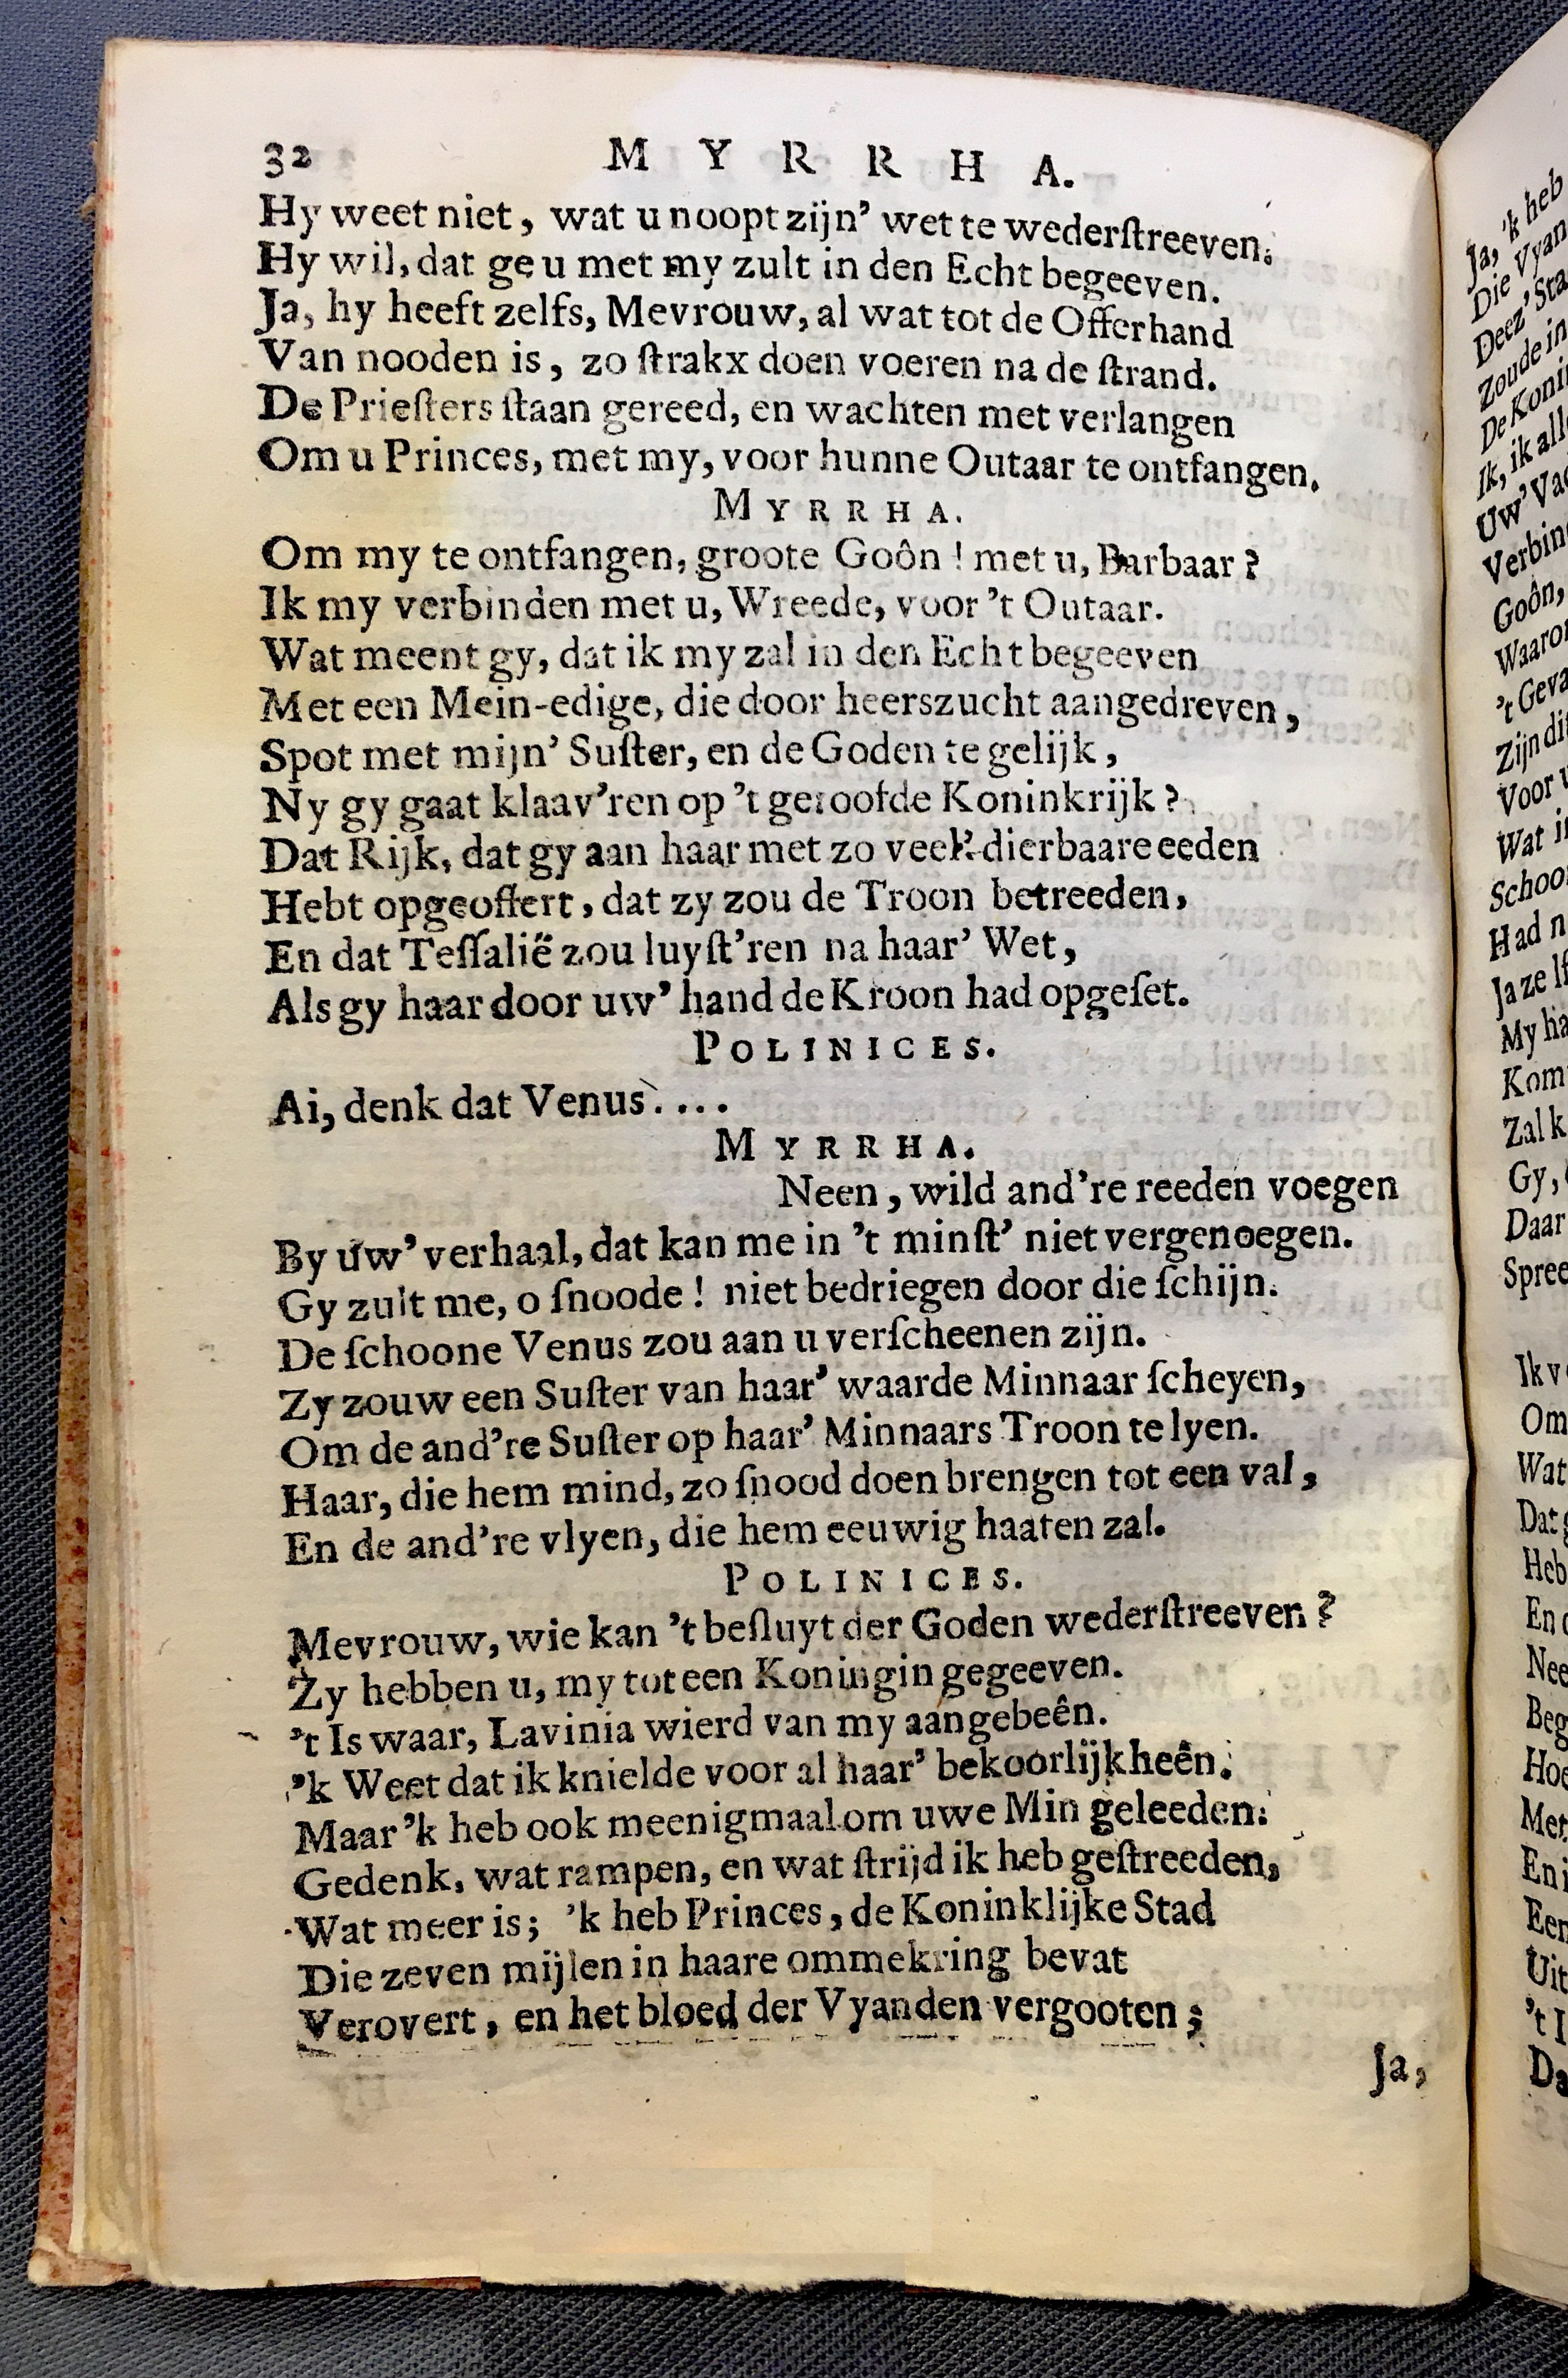 32 MYRRHA.
Hy weet niet, wat u noopt zijn’ wet te wederſtreeven.
Hy wil, dat ge u met my zult in den Echt begeeven.
Ja, hy heeft zelfs, Mevrouw, al wat tot de Offerhand
Van nooden is, zo ſtrakx doen voeren na de ſtrand.
De Prieſters ſtaan gereed, en wachten met verlangen
Om u Princes, met my, voor hunne Outaar te ontfangen.
MYRRHA.
Om my te ontfangen, groote Goôn! met u, Barbaar?
Ik my verbinden met u, Wreede, voor ’t Outaar.
Wat meent gy, dat ik my zal in den Echt begeeven
Met een Mein-edige, die door heerszucht aangedreven,
Spot met mijn’ Suſter, en de Goden te gelijk,
Ny gy gaat klaav’ren op ’t geroofde Koninkrijk?
Dat Rijk, dat gy aan haar met zo veel’ dierbaare eeden
Hebt opgeoffert, dat zy zou de Troon betreeden,
En dat Teſſalië zou luyſt’ren na haar’ Wet,
Als gy haar door uw’ hand de Kroon had opgeſet.
POLINICES.
Ai, denk dat Venus....
MYRRHA.
Neen, wild and’re reeden voegen
By uw’ verhaal, dat kan me in ’t minſt’ niet vergenoegen.
Gy zult me, o ſnoode! niet bedriegen door die ſchijn.
De ſchoone Venus zou aan u verſcheenen zijn.
Zy zouw een Suſter van haar’ waarde Minnaar ſcheyen,
Om de and’re Suſter op haar’ Minnaars Troon te lyen.
Haar, die hem mind, zo ſnood doen brengen tot een val,
En de and’re vlyen, die hem eeuwig haaten zal.
POLINICES.
Mevrouw, wie kan ’t beſluyt der Goden wederſtreeven?
Zy hebben u, my tot een Koningin gegeeven.
’t Is waar, Lavinia wierd van my aangebeên.
’k Weet dat ik knielde voor al haar’ bekoorlijkheên.
Maar ’k heb ook meenigmaal om uwe Min geleeden.
Gedenk, wat rampen, en wat ſtrijd ik heb geſtreeden,
Wat meer is; ’k heb Princes, de Koninklijke Stad
Die zeven mijlen in haare ommekring bevat
Verovert, en het bloed der Vyanden vergooten;
Ja,
Ja, ’k heb
Die Vyan
Deez’ Sta
Zoude in
De Koni
Ik, ik all
Uw’ Va
Verbin
Goôn,
Waaro
’t Geva
Zijn di
Voor
Wat i
Schoo
Had n
Ja zelf
My ha
Kom
Zal k
Gy,
Daar
Spree
Ik v
Om
Wat
Dat g
Heb
En
Nee
Beg
Hoe
Met
En i
Een
Uit
’t I
Da